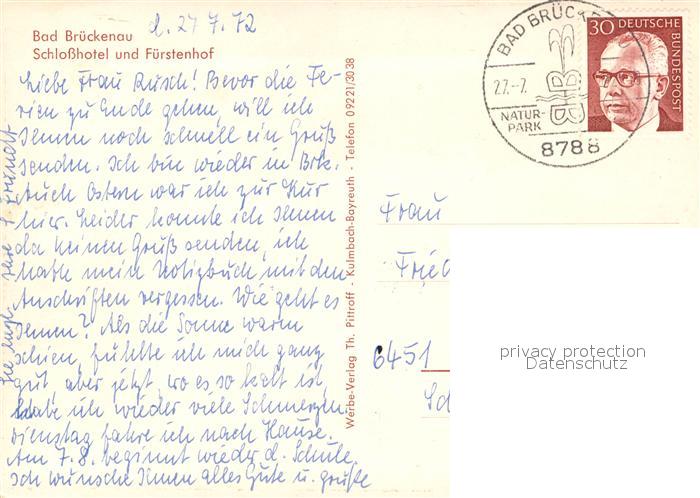 Bad Brückenau
Schloßhotel und Fürstenhof
d. 27 7. 72
Liebe Frau Rusch! Bevor die Fe-
rien zu Ende gehen, will ich
Ihnen noch schnell ein Gruß
senden. Ich bin wieder in Brk.
auch Ostern war ich zur Kur
hier. Leider konnte ich Ihnen
da keinen Gruß senden, ich
hatte mein Notizbuch mit den
Anschriften vergessen. Wie geht es
Ihnen? Als die Sonne warm
schien, fühlte ich mich ganz
gut, aber jetzt, wo es so kalt ist,
habe ich wieder viele Schmerzen.
Dienstag fahre ich nach Hause.
Am 7.8. beginnt wieder d. Schule.
Ich wünsche Ihnen alles Gute u. grüße
Ihre
Werbe-Verlag Th. Pittroff - Kulmbach-Bayreuth - Telefon 09221/3038
BAD BRÜCKE
27.-7.
NATUR-
PARK
8788
30
DEUTSCHE
BUNDESPOST
Frau
Frie
6451
Sch
privacy protection
Datenschutz